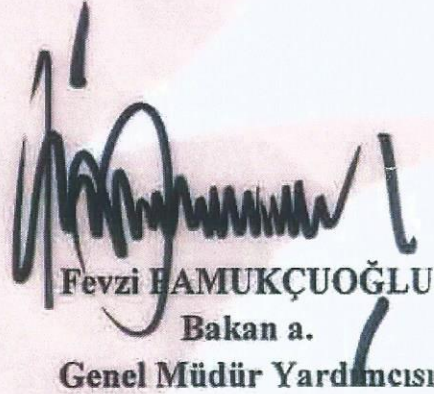 Fevzi PAMUKÇUOĞLU
Bakan a.
Genel Müdür Yardımcısı